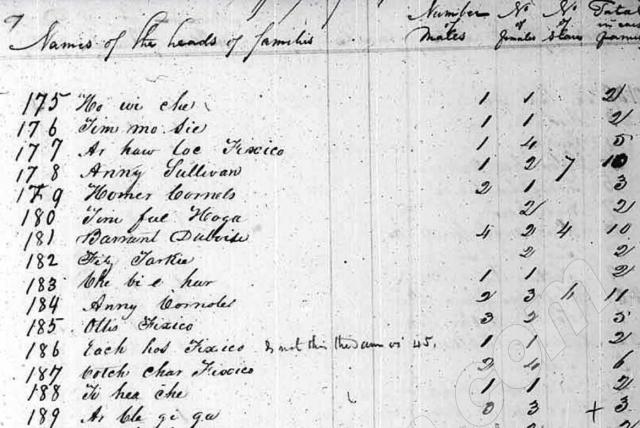 Names of the heads of families Number of Males No of females No of Slaves Total in each
175 Ho wi che 1 1 2
176 Tim mo sie 1 1 2
177 Ar haw loc Fixico 1 4 5
178 Anny Sullivan 1 2 7 10
179 Homer Cornels 2 1 3
180 Tim ful Hoga 2 2
181 Barrant 4 2 4 10
182 2 2
183 Che bi e har 1 1 2
184 Anny Cornoles 2 3 6 11
185 Ottis Fixico 3 2 5
186 Each hos Fixico is not this the same as 45. 1 1 2
187 Cotch char Fixico 2 4 6
188 Ti hea che 1 1 2
189 Ar 3 + 3